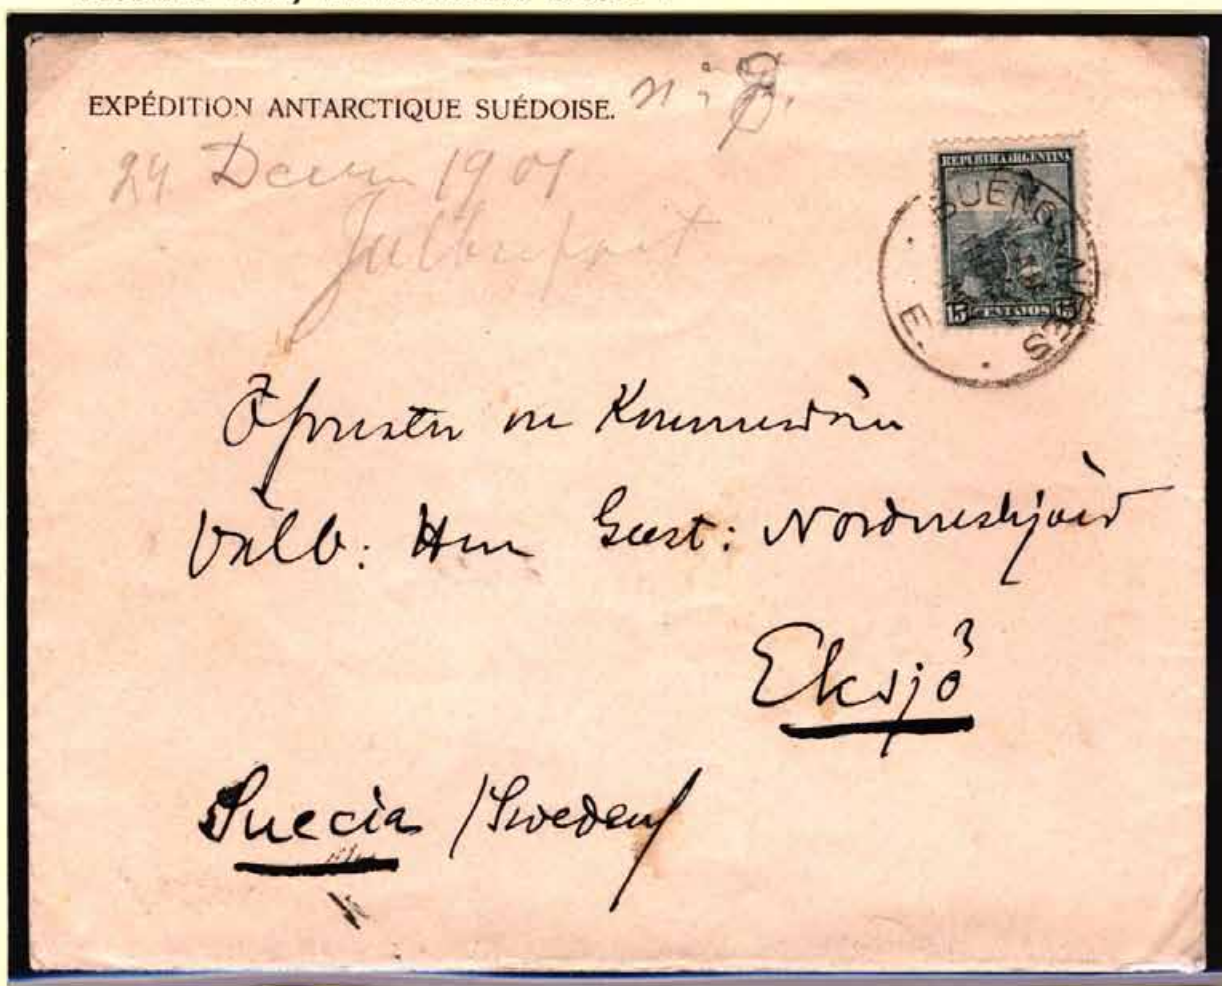 EXPÉDITION ANTARCTIQUE SUÉDOISE. n:
24 Decem 1901
REPUBLICA ARGENTINA
BUENOS AIRES
15 CENTAVOS 15
E.
Öfversten
Välb: Herr Gust: Nordenskjöld
Eksjö
Suecia /Sweden/